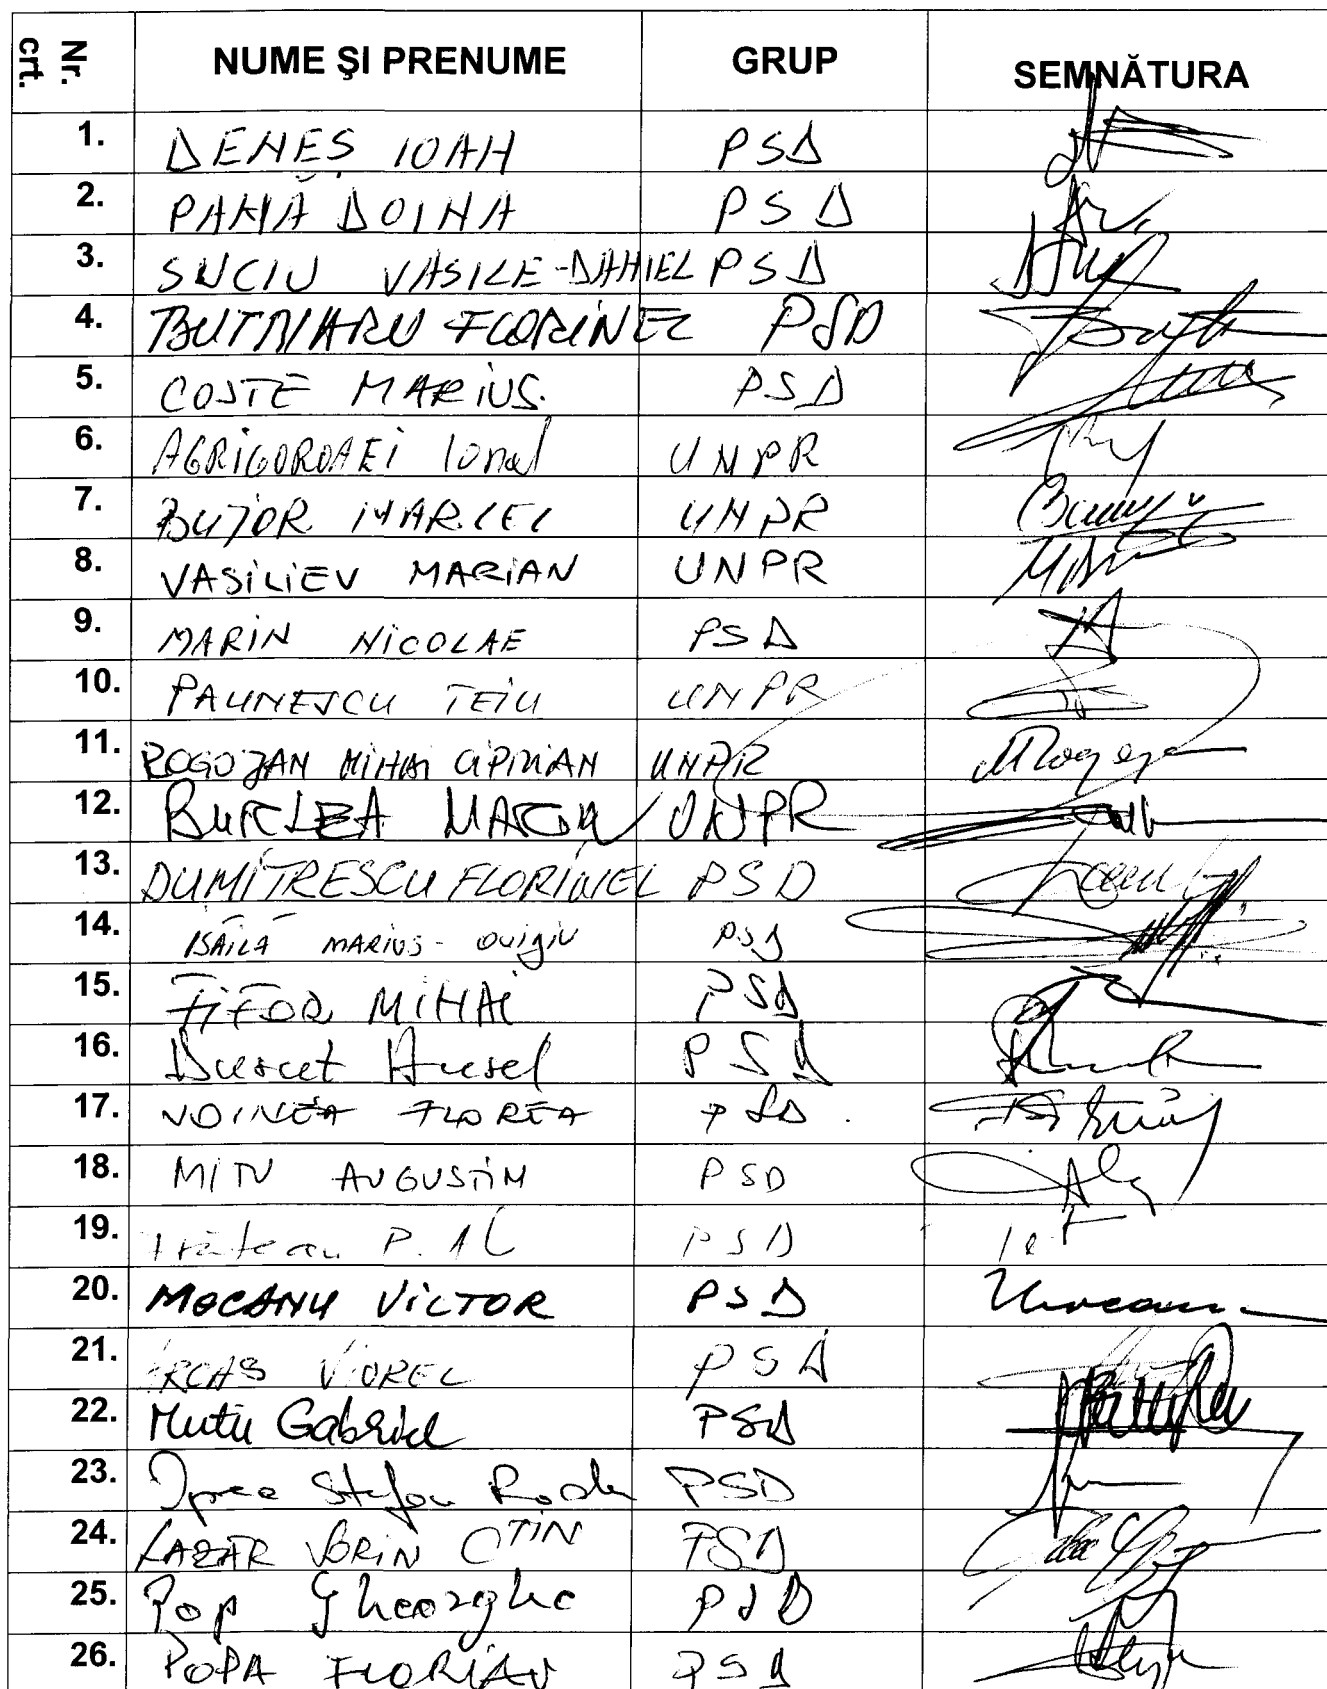 Nr. crt. NUME ŞI PRENUME GRUP SEMNĂTURA
1. DENEŞ IOAN PSD
2. PANĂ DOINA PSD
3. SUCIU VASILE-DANIEL PSD
4. BUTNARU FLORINEL PSD
5. COSTE MARIUS. PSD
6. AGRIGOROAEI Ionel UNPR
7. BUJOR MARCEL UNPR
8. VASILIEV MARIAN UNPR
9. MARIN NICOLAE PSD
10. PAUNESCU TEIU UNPR
11. ROGOJAN MIHAI CIPRIAN UNPR
12. BURLEA MARIN UNPR
13. DUMITRESCU FLORINEL PSD
14. ISĂILĂ MARIUS-OVIDIU PSD
15. FIFOR MIHAI PSD
16. PSD
17. VOINEA FLOREA PSD.
18. MITU AUGUSTIN PSD
19. P. PSD
20. MOCANU VICTOR PSD
21. ARCAŞ VIOREL PSD
22. Mutu Gabriel PSD
23. Oprea Stefan Radu PSD
24. LAZĂR SORIN PSD
25. Pop Gheorghe PSD
26. POPA FLORIAN PSD